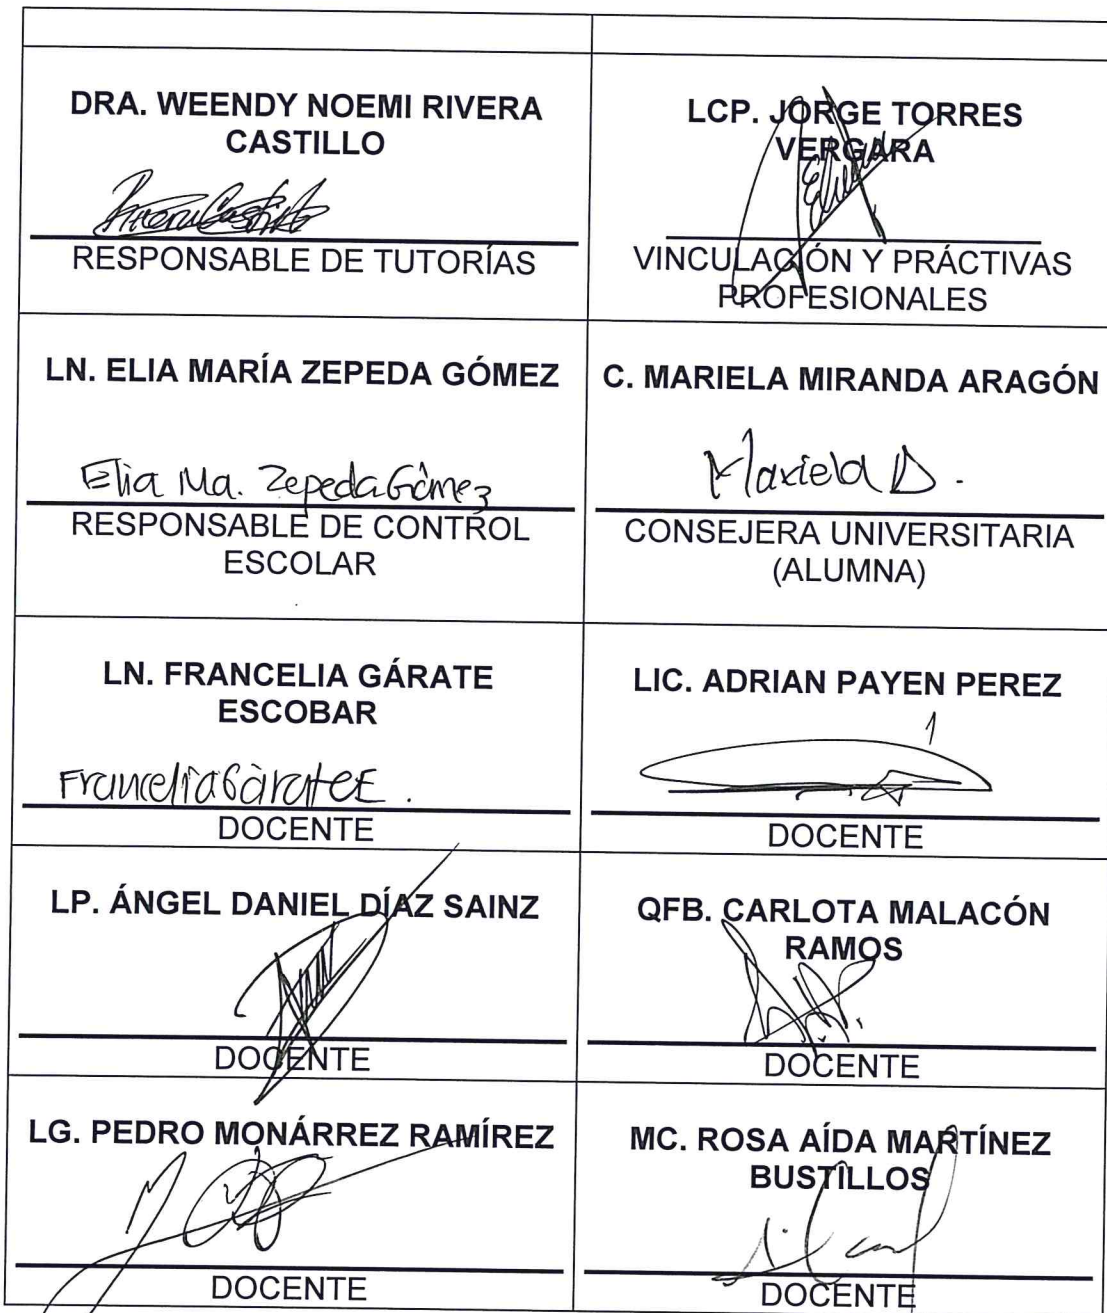 DRA. WEENDY NOEMI RIVERA
CASTILLO
RESPONSABLE DE TUTORÍAS
LCP. JORGE TORRES
VERGARA
VINCULACIÓN Y PRÁCTIVAS
PROFESIONALES
LN. ELIA MARÍA ZEPEDA GÓMEZ
Elia Ma. Zepeda Gómez
RESPONSABLE DE CONTROL
ESCOLAR
C. MARIELA MIRANDA ARAGÓN
Mariela
CONSEJERA UNIVERSITARIA
(ALUMNA)
LN. FRANCELIA GÁRATE
ESCOBAR
Francelia Gárate E.
DOCENTE
LIC. ADRIAN PAYEN PEREZ
DOCENTE
LP. ÁNGEL DANIEL DÍAZ SAINZ
DOCENTE
QFB. CARLOTA MALACÓN
RAMOS
DOCENTE
LG. PEDRO MONÁRREZ RAMÍREZ
DOCENTE
MC. ROSA AÍDA MARTÍNEZ
BUSTILLOS
DOCENTE